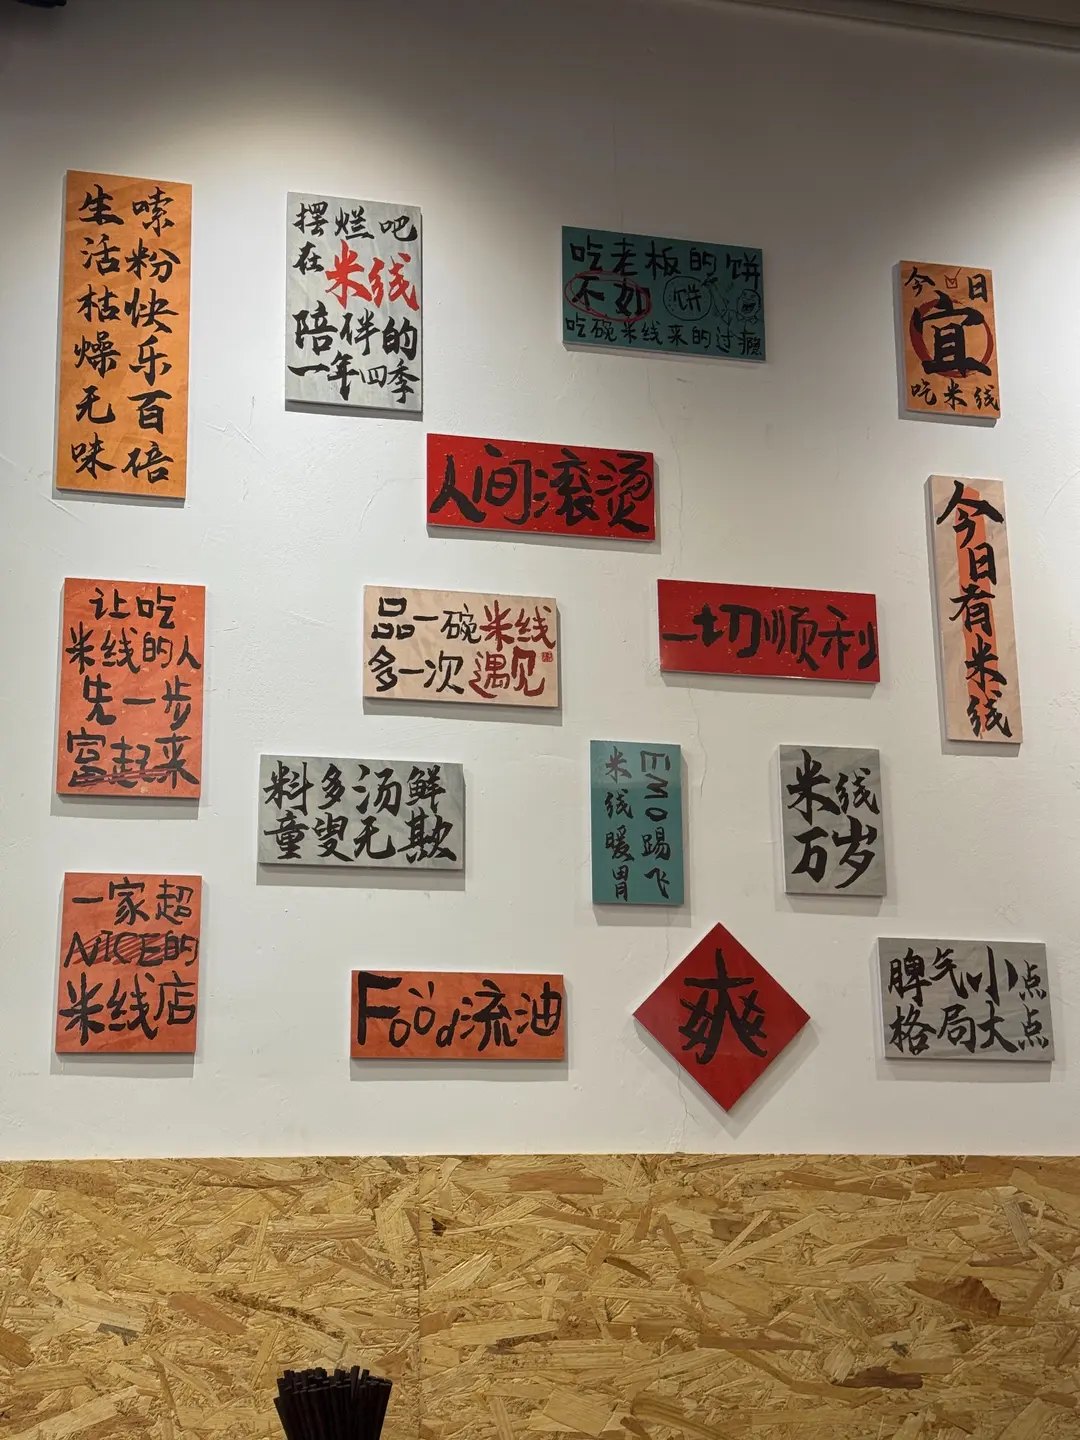 生活枯燥无味
嗦粉快乐百倍
摆烂吧
在米线
陪伴的
一年四季
吃老板的饼
不如 饼
吃碗米线来的过瘾
今日
宜
吃米线
人间滚烫
今日有米线
让吃
米线的人
先一步
富起来
品一碗米线
多一次遇见
一切顺利
料多汤鲜
童叟无欺
EMO踢飞
米线暖胃
米线
万岁
一家超
NICE的
米线店
Food流油
爽
脾气小点
格局大点